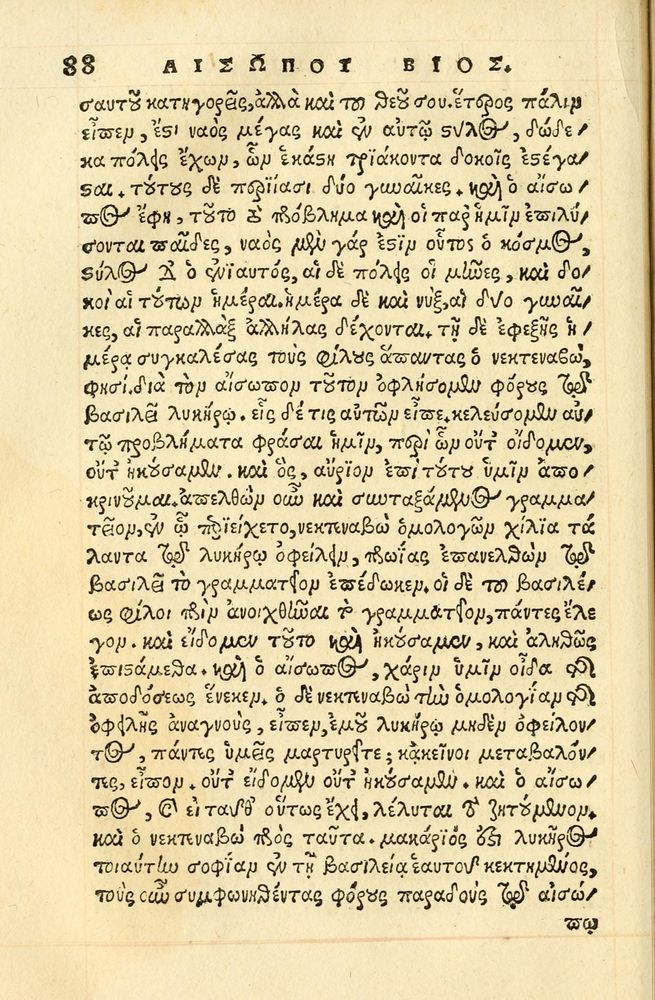 88 ΑΙΣΩΠΟΥ ΒΙΟΣ.
σαυτοῦ κατηγορεῖς, ἀλλὰ καὶ τοῦ θεοῦ σου. ἕτερος πάλιν
εἶπεν, ἔστι ναὸς μέγας καὶ ἐν αὐτῷ στύλος, δώδε/
κα πόλεις ἔχων, ὧν ἑκάστη τριάκοντα δοκοῖς ἐστέγα/
σται. τούτους δὲ περιΐασι δύο γυναῖκες. καὶ ὁ αἴσω/
πος ἔφη, τοῦτο τὸ πρόβλημα καὶ οἱ παρ' ἡμῖν ἐπιλύ/
σονται παῖδες, ναὸς μὲν γάρ ἐστιν οὗτος ὁ κόσμος,
στύλος δὲ ὁ ἐνιαυτός, αἱ δὲ πόλεις οἱ μῆνες, καὶ δο/
κοὶ αἱ τούτων ἡμέραι. ἡμέρα δὲ καὶ νὺξ, αἱ δύο γυναῖ/
κες, αἱ παραλλὰξ ἀλλήλας δέχονται. τῇ δὲ ἐφεξῆς ἡ/
μέρᾳ συγκαλέσας τοὺς φίλους ἅπαντας ὁ νεκτεναβὼ,
φησί. διὰ τὸν αἴσωπον τοῦτον ὀφλήσομεν φόρους τῷ
βασιλεῖ λυκήρῳ. εἷς δέ τις αὐτῶν εἶπε. κελεύσομεν αὐ/
τῷ προβλήματα φράσαι ἡμῖν, περὶ ὧν οὔτ' οἴδομεν,
οὔτ' ἠκούσαμεν. καὶ ὃς, αὔριον ἐπὶ τούτου ὑμῖν ἀπο/
κρινοῦμαι. ἀπελθὼν οὖν καὶ συνταξάμενος γραμμα/
τεῖον, ἐν ᾧ περιείχετο, νεκτεναβὼ ὁμολογῶν χίλια τά
λαντα τῷ λυκήρῳ ὀφείλειν, πρωΐας ἐπανελθὼν τῷ
βασιλεῖ τὸ γραμματεῖον ἐπέδωκεν. οἱ δὲ τοῦ βασιλέ/
ως φίλοι πρὶν ἀνοιχθῆναι τὸ γραμματεῖον, πάντες ἔλε
γον. καὶ εἴδομεν τοῦτο καὶ ἠκούσαμεν, καὶ ἀληθῶς
ἐπιστάμεθα. καὶ ὁ αἴσωπος, χάριν ὑμῖν οἶδα τῆς
ἀποδόσεως ἕνεκεν. ὁ δὲ νεκτεναβὼ τὴν ὁμολογίαν τῆς
ὀφειλῆς ἀναγνοὺς, εἶπεν, ἐμοῦ λυκήρῳ μηδὲν ὀφείλον/
τος, πάντες ὑμεῖς μαρτυρεῖτε; κἀκεῖνοι μεταβαλόν/
τες, εἶπον. οὔτ' εἴδομεν οὔτ' ἠκούσαμεν. καὶ ὁ αἴσω/
πος, καὶ εἰ ταῦθ' οὕτως ἔχει, λέλυται τὸ ζητούμενον.
καὶ ὁ νεκτεναβὼ πρὸς ταῦτα. μακάριός ἐστι λυκῆρος
τοιαύτην σοφίαν ἐν τῇ βασιλείᾳ ἑαυτοῦ κεκτημένος,
τοὺς οὖν συμφωνηθέντας φόρους παραδοὺς τῷ αἰσώ/
πῳ